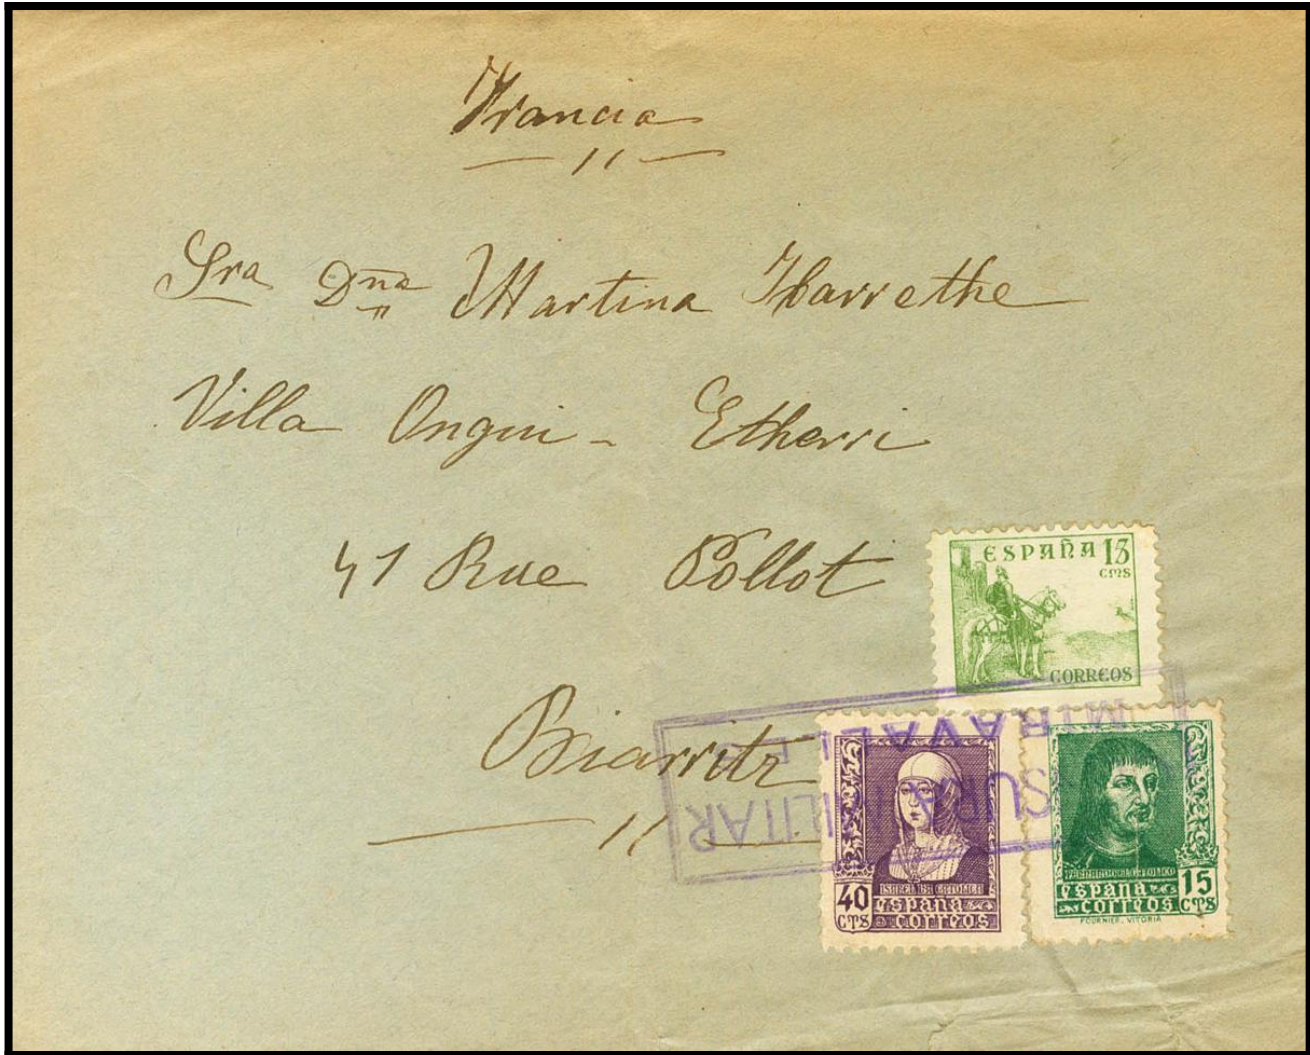 Francia
Sra Dña Martina Ibarrethe
Villa Ongui - Etherri
41 Rue Pollot
Biarritz
ESPAÑA 15
CMS
CORREOS
CENSURA MILITAR
MIRAVALLES
ISABEL LA CATOLICA
40 CTS
españa
correos
FERNANDO EL CATOLICO
españa
correos
15 CTS
FOURNIER. VITORIA